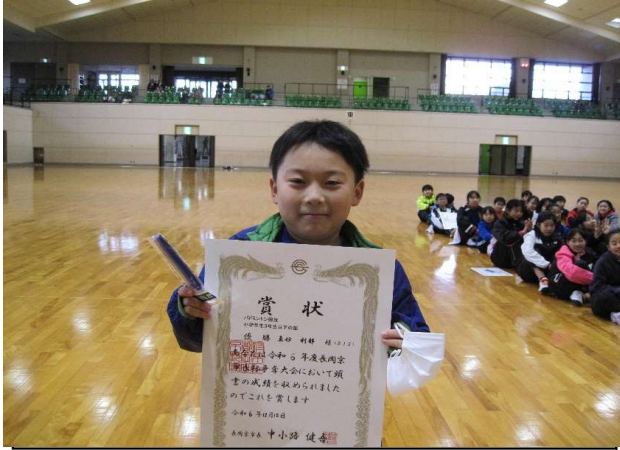 賞状
バドミントン競技
小学生女子3年生以下の部
優勝
あなたは令和6年度長岡京
市長杯争奪大会において頭
書の成績を収められました
のでこれを賞します
令和6年12月15日
長岡京市長 中小路健吾